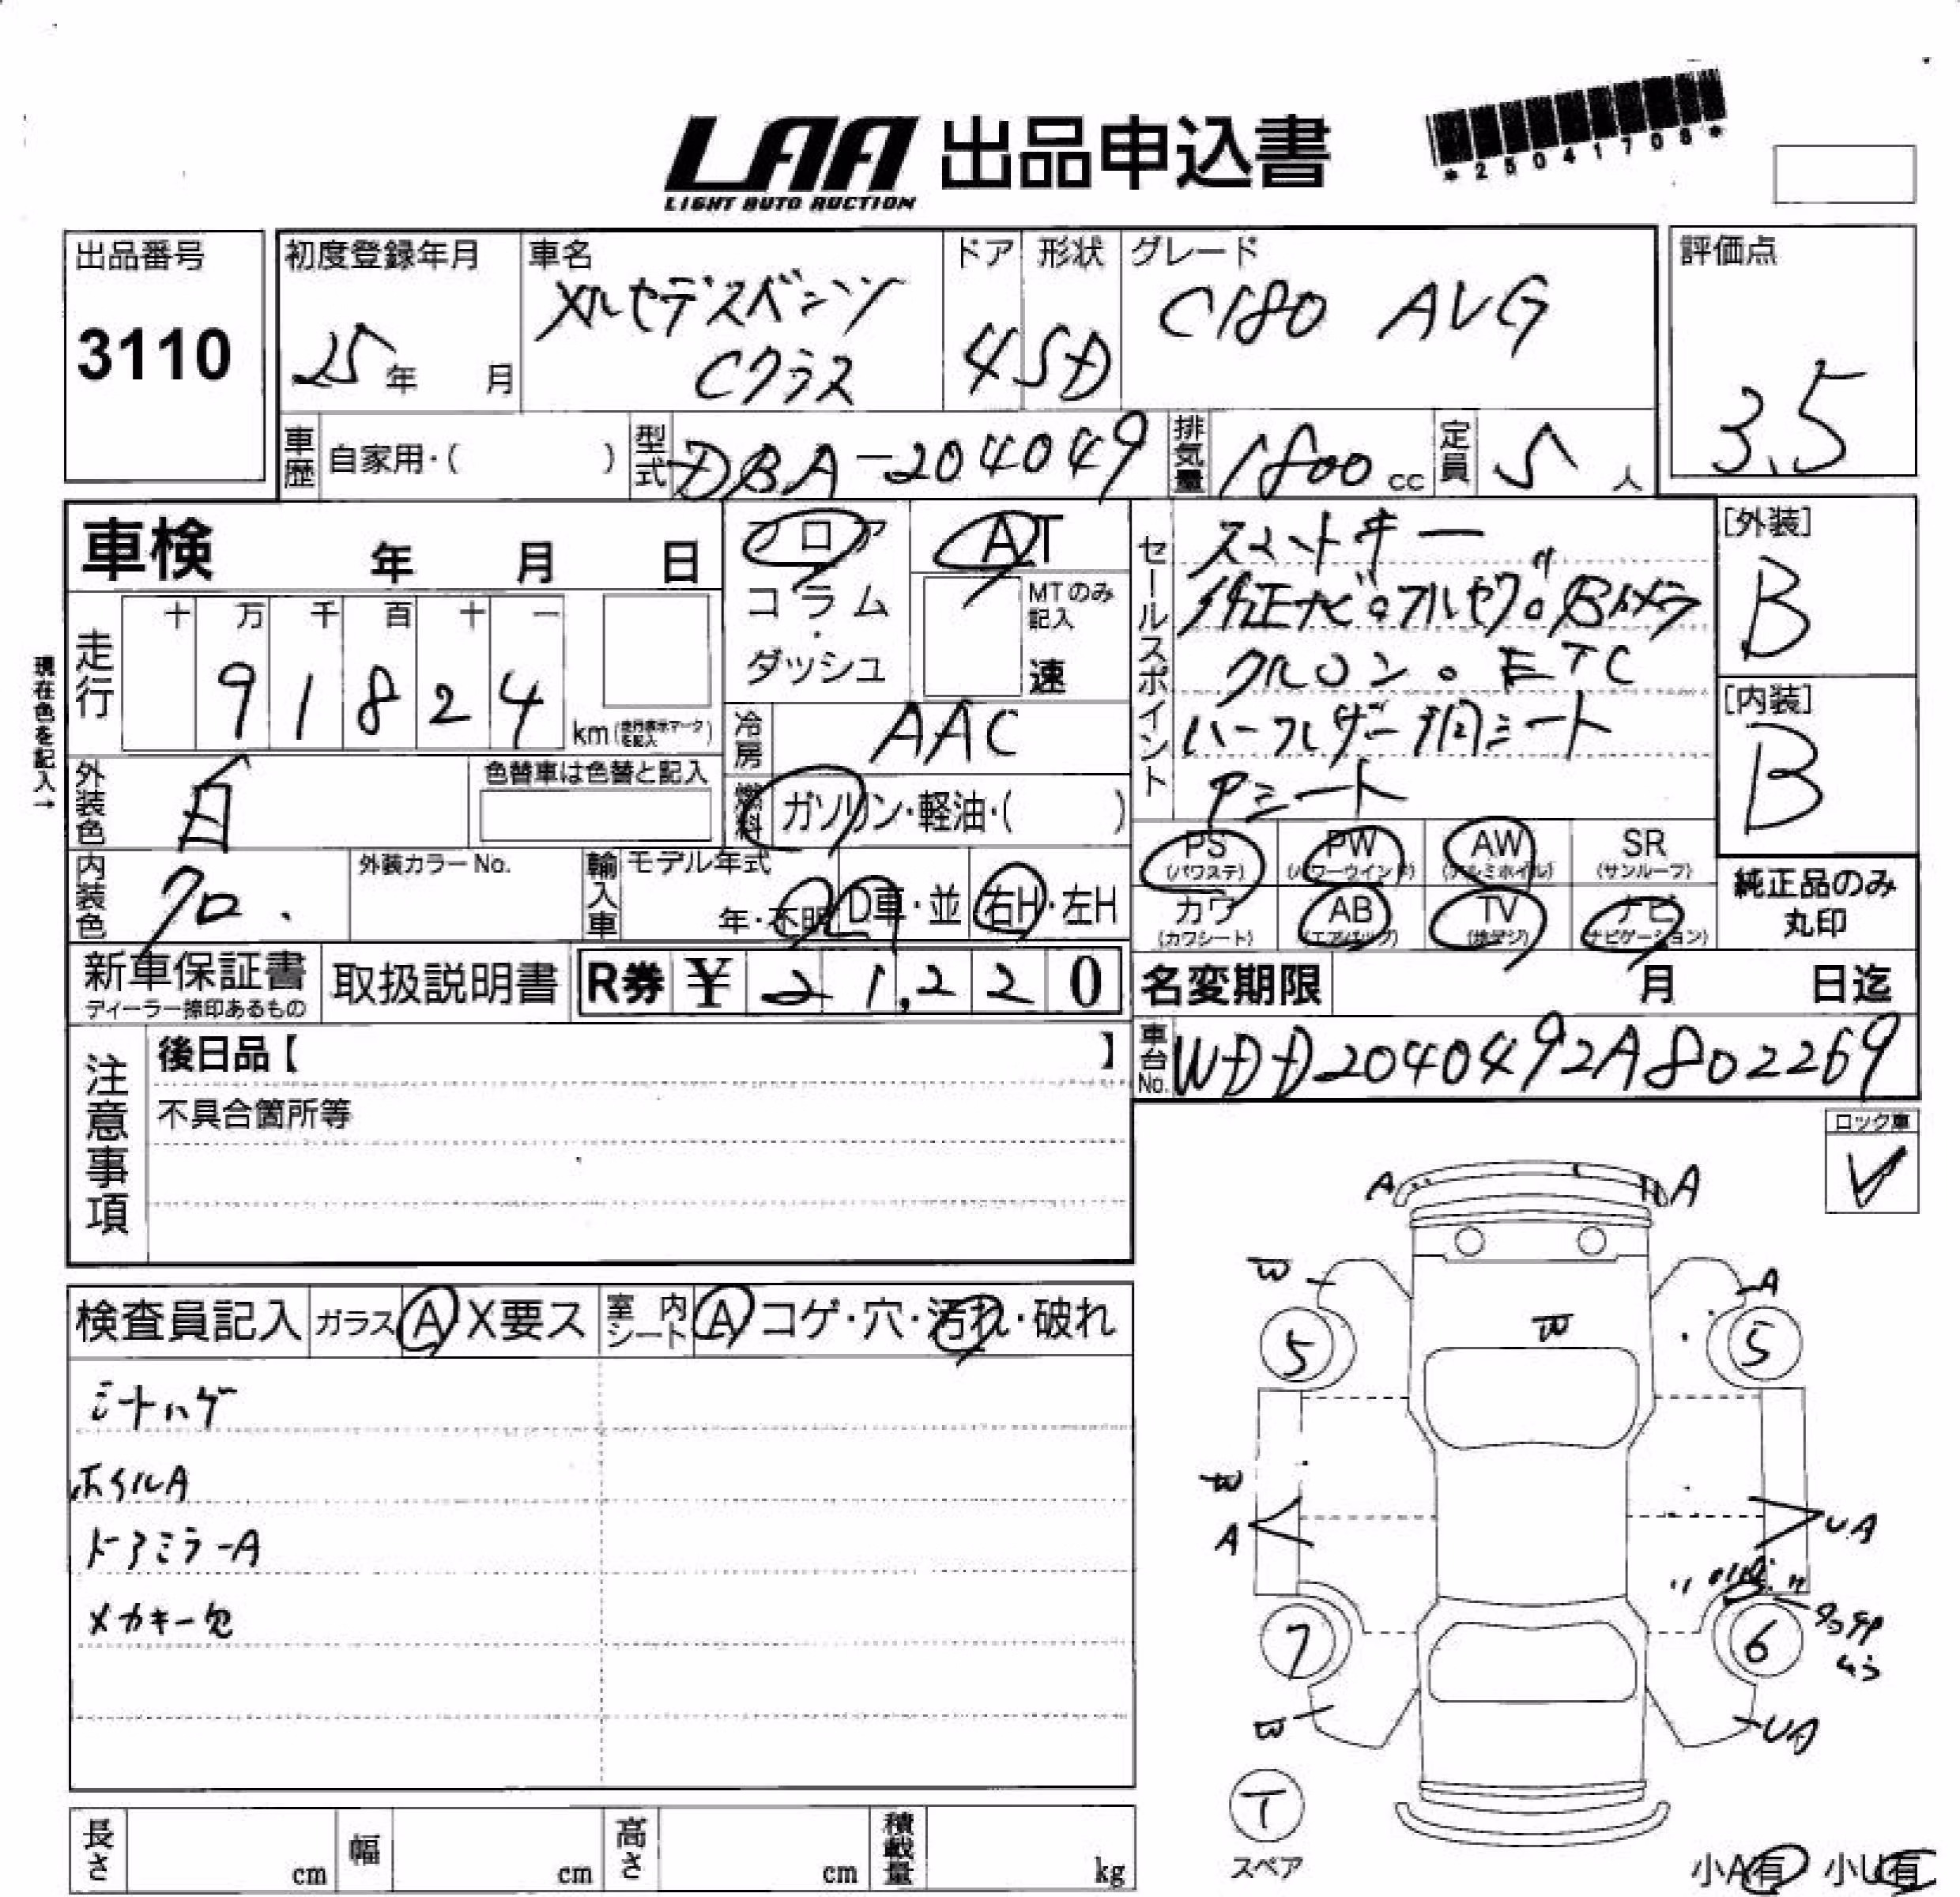 LAA 出品申込書
LIGHT AUTO AUCTION
*25041708*
出品番号
3110
初度登録年月
25年 月
車名
メルセデスベンツ
Cクラス
ドア
4
形状
SD
グレード
C180 AVG
評価点
3.5
車歴
自家用・( )
型式
DBA-204049
排気量
1800cc
定員
5人
車検 年 月 日
フロア
コラム
・
ダッシュ
AT
MTのみ
記入
速
セールスポイント
スマートキー
純正ナビ。フルセグ。Bカメラ
クルコン。ETC
ハーフレザー調シート
Pシート
[外装]
B
[内装]
B
現在色を記入→
走行
十 万 千 百 十 一
9 1 8 2 4
km(走行表示マークを記入)
冷房
AAC
外装色
白
色替車は色替と記入
燃料
ガソリン・軽油・( )
内装色
クロ.
外装カラーNo.
輸入車
モデル年式
年・不明
D車・並
右H・左H
PS
(パワステ)
PW
(パワーウインド)
AW
(アルミホイル)
SR
(サンルーフ)
カワ
(カワシート)
AB
(エアバッグ)
TV
(地デジ)
ナビ
(ナビゲーション)
純正品のみ
丸印
新車保証書
ディーラー捺印あるもの
取扱説明書
R券 ¥ 21,220
名変期限 月 日迄
車台No.
WDD2040492A802269
注意事項
後日品【 】
不具合箇所等
ロック車
✓
検査員記入
ガラス A X要ス
室内シート A コゲ・穴・汚れ・破れ
シートハゲ
ホイルA
ドアミラーA
メカキー欠
A
A
W
A
5
W
5
W
A
UA
7
6
W
UA
T
スペア
小A有 小U有
長さ cm
幅 cm
高さ cm
積載量 kg